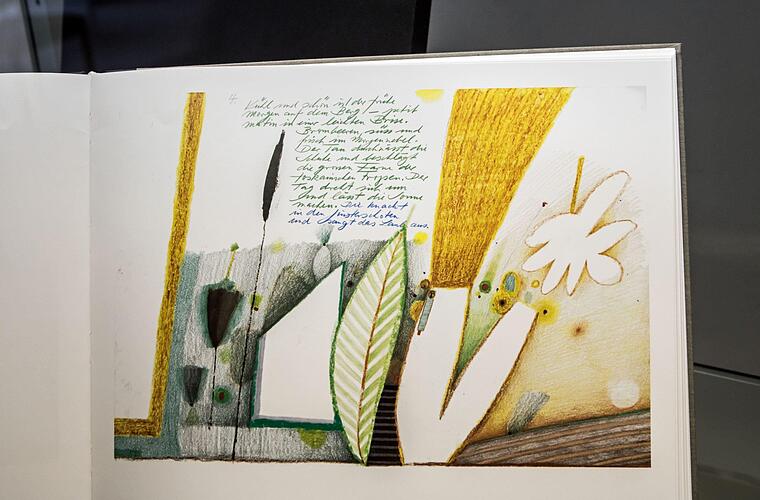 4.
Kühl und schön ist der frühe
Morgen auf dem Berg
in einer leichten Brise.
Brombeeren, süss und
frisch im Morgennebel.
Der Tau durchnässt die
Schuhe und beschlägt
die grossen Farne der
toskanischen Tropen. Der
Tag dreht sich um
und lässt die Sonne
machen. Sie knackt
in den Ginsterschoten
und saugt das Land aus.